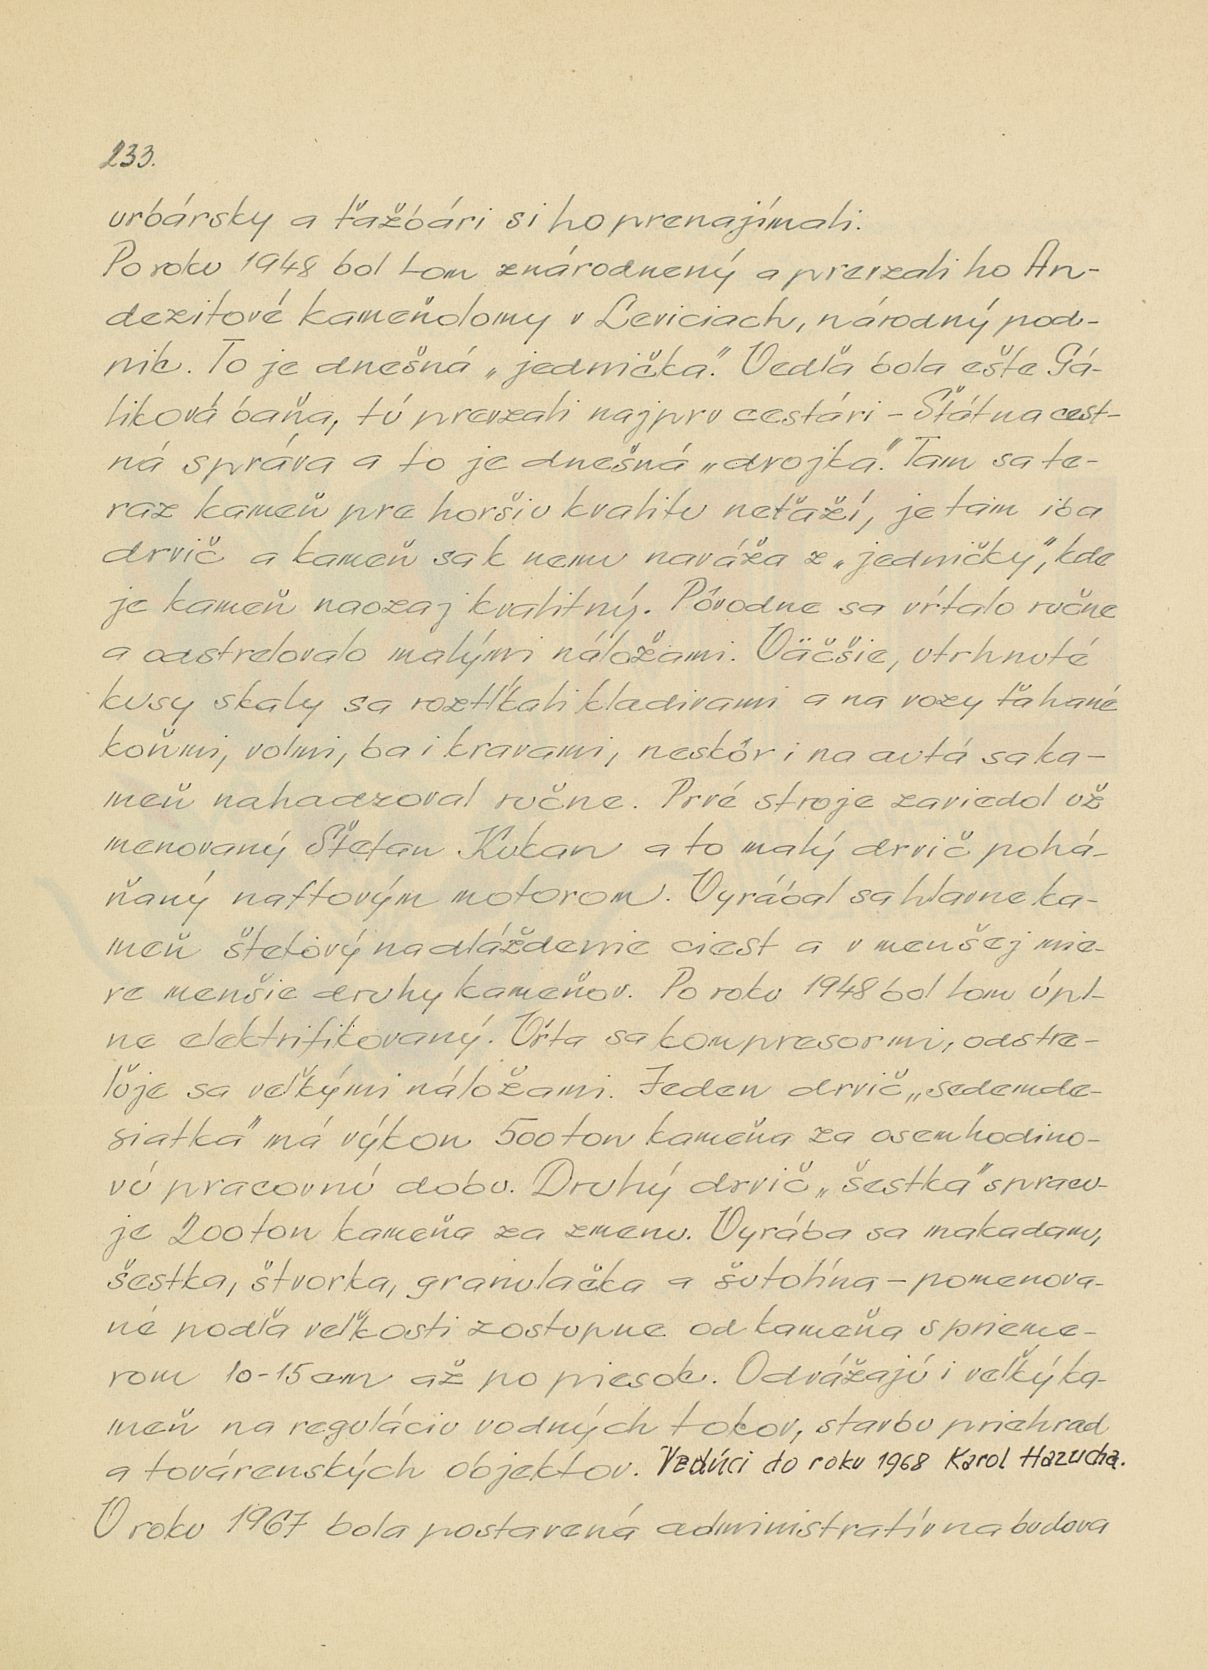 233.
urbársky a ťažbári si ho prenajímali.
Po roku 1948 bol Lom znárodnený a prevzali ho An-
dezitové kameňolomy v Leviciach, národný pod-
nik. To je dnešná „jednička". Vedľa bola ešte Gá-
liková baňa, tú prevzali najprv cestári – Štátna cest-
ná správa a to je dnešná „dvojka". Tam sa te-
raz kameň pre horšiu kvalitu neťaží, je tam iba
drvič a kameň sa k nemu naváža z „jedničky", kde
je kameň naozaj kvalitný. Pôvodne sa vŕtalo ručne
a odstrelovalo malými náložami. Väčšie, utrhnuté
kusy skaly sa roztĺkali kladivami a na vozy ťahané
koňmi, volmi, ba i kravami, neskôr i na autá sa ka-
meň nahadzoval ručne. Prvé stroje zaviedol už
menovaný Štefan Kukan a to malý drvič pohá-
ňaný naftovým motorom. Vyrábal sa hlavne ka-
meň štetový na dláždenie ciest a v menšej mie-
re menšie druhy kameňov. Po roku 1948 bol lom úpl-
ne elektrifikovaný. Vŕta sa kompresormi, odstre-
ľuje sa veľkými náložami. Jeden drvič „sedemde-
siatka" má výkon 500 ton kameňa za osemhodino-
vú pracovnú dobu. Druhý drvič „šestka" spracu-
je 200 ton kameňa za zmenu. Vyrába sa makadam,
šestka, štvorka, granulačka a šutolína – pomenova-
né podľa veľkosti zostupne od kameňa s prieme-
rom 10-15 cm až po piesok. Odvážajú i veľký ka-
meň na reguláciu vodných tokov, stavbu priehrad
a továrenských objektov. Vedúci do roku 1968 Karol Hazucha.
V roku 1967 bola postavená administratívna budova